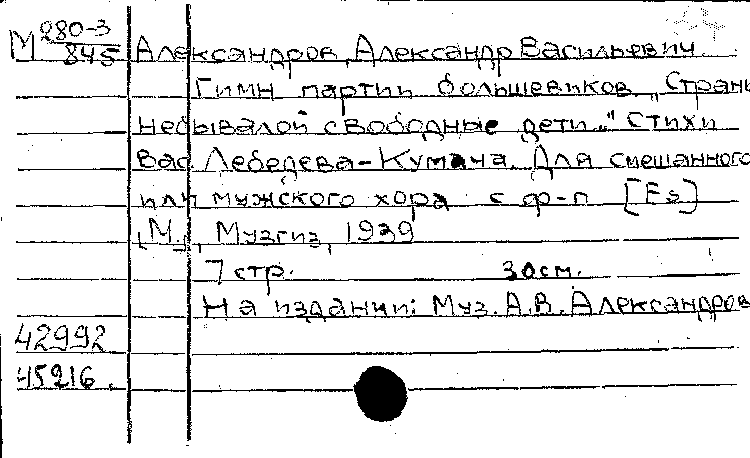 М 280-3/845 Александров, Александр Васильевич.
Гимн партии большевиков „Страны
небывалой свободные дети..." Стихи
Вас. Лебедева-Кумача. Для смешанного
или мужского хора с ф-п [Es]
[М.], Музгиз, 1939
7 стр. 30см.
На издании: Муз. А.В. Александров
42992
45216.